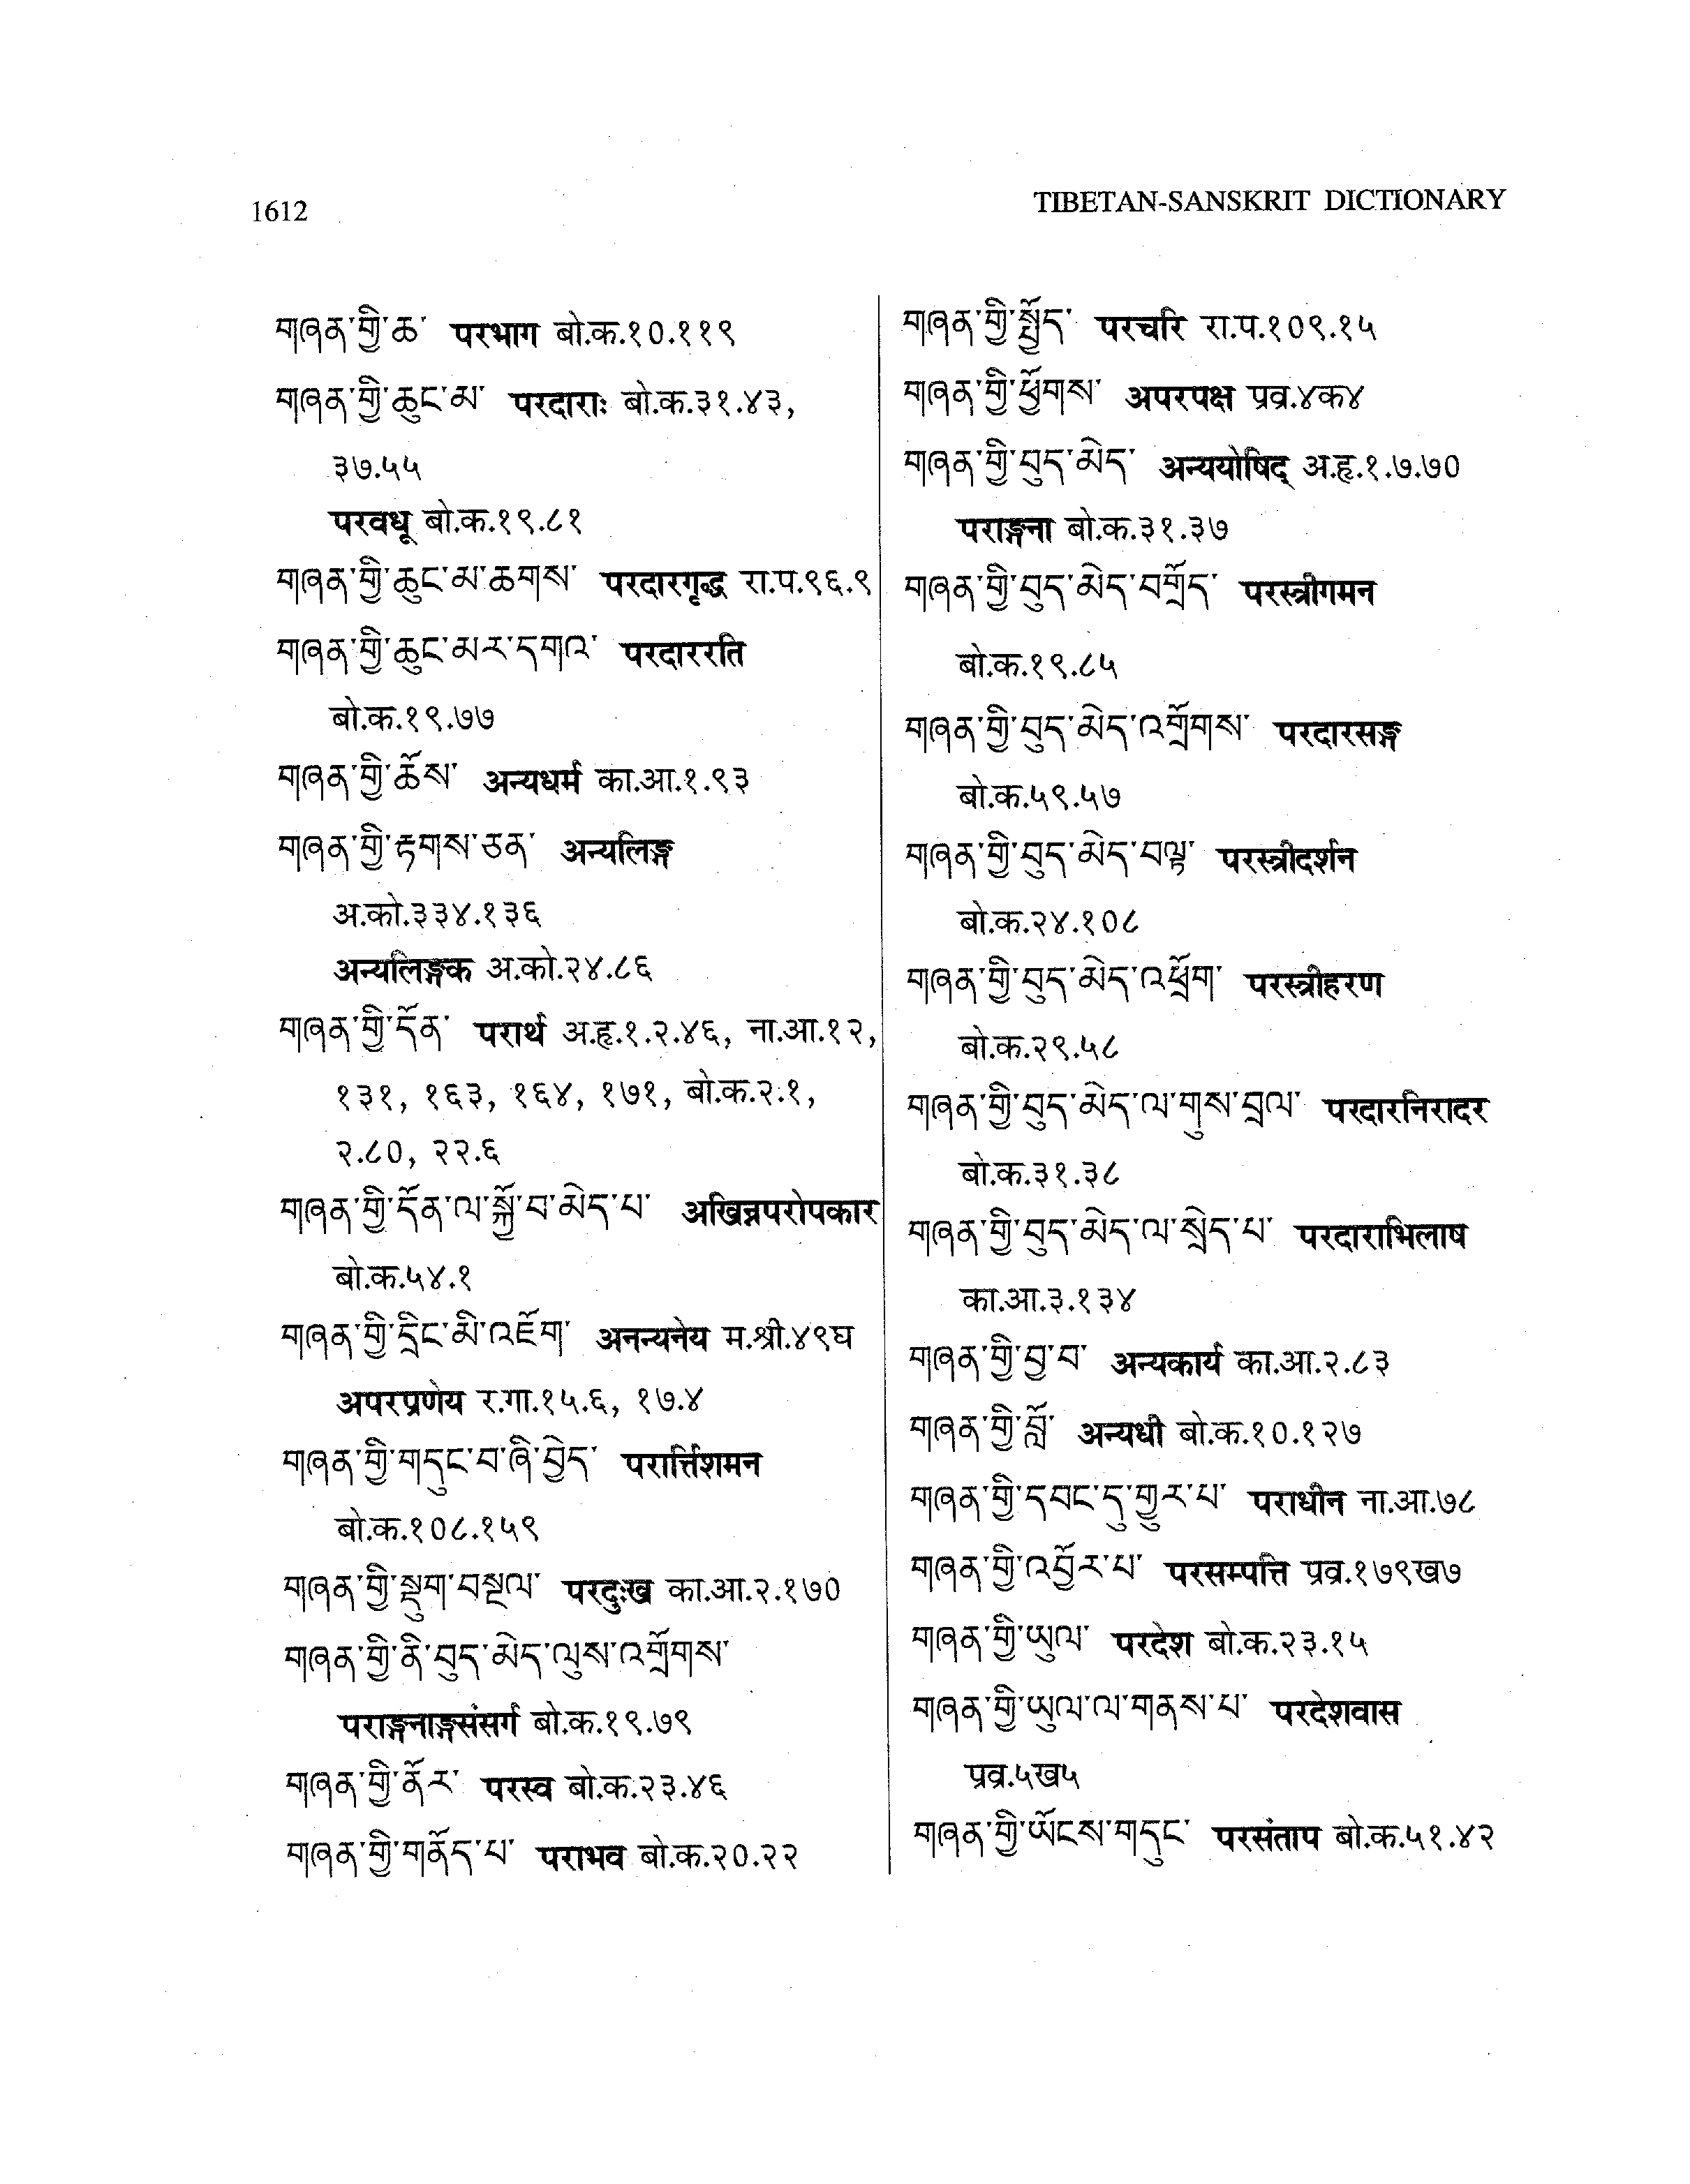 1612
TIBETAN-SANSKRIT DICTIONARY
གཞན་གྱི་ཆ་ परभाग बो.क.१०.११९
གཞན་གྱི་ཆུང་མ་ परदाराः बो.क.३१.४३,
३७.५५
परवधू बो.क.१९.८१
གཞན་གྱི་ཆུང་མ་ཆགས་ परदारगृद्ध रा.प.९६.९
གཞན་གྱི་ཆུང་མར་དགའ་ परदाररति
बो.क.१९.७७
གཞན་གྱི་ཆོས་ अन्यधर्म का.आ.१.९३
གཞན་གྱི་རྟགས་ཅན་ अन्यलिङ्ग
अ.को.३३४.१३६
अन्यलिङ्गक अ.को.२४.८६
གཞན་གྱི་དོན་ परार्थ अ.हृ.१.२.४६, ना.आ.१२,
१३१, १६३, १६४, १७१, बो.क.२.१,
२.८०, २२.६
གཞན་གྱི་དོན་ལ་སྐྱོ་བ་མེད་པ་ अखिन्नपरोपकार
बो.क.५४.१
གཞན་གྱི་དྲིང་མི་འཇོག་ अनन्यनेय म.श्री.४९घ
अपरप्रणेय र.गा.१५.६, १७.४
གཞན་གྱི་གདུང་བ་ཞི་བྱེད་ परार्त्तिशमन
बो.क.१०८.१५९
གཞན་གྱི་སྡུག་བསྔལ་ परदुःख का.आ.२.१७०
གཞན་གྱི་ནི་བུད་མེད་ལུས་འགྲོགས་
पराङ्गनाङ्गसंसर्ग बो.क.१९.७९
གཞན་གྱི་ནོར་ परस्व बो.क.२३.४६
གཞན་གྱི་གནོད་པ་ पराभव बो.क.२०.२२
གཞན་གྱི་སྤྱོད་ परचरि रा.प.१०९.१५
གཞན་གྱི་ཕྱོགས་ अपरपक्ष प्रव्र.४क४
གཞན་གྱི་བུད་མེད་ अन्ययोषिद् अ.हृ.१.७.७०
पराङ्गना बो.क.३१.३७
གཞན་གྱི་བུད་མེད་བགྲོད་ परस्त्रीगमन
बो.क.१९.८५
གཞན་གྱི་བུད་མེད་འགྲོགས་ परदारसङ्ग
बो.क.५९.५७
གཞན་གྱི་བུད་མེད་བལྟ་ परस्त्रीदर्शन
बो.क.२४.१०८
གཞན་གྱི་བུད་མེད་འཕྲོག་ परस्त्रीहरण
बो.क.२९.५८
གཞན་གྱི་བུད་མེད་ལ་གུས་བྲལ་ परदारनिरादर
बो.क.३१.३८
གཞན་གྱི་བུད་མེད་ལ་སྲེད་པ་ परदाराभिलाष
का.आ.३.१३४
གཞན་གྱི་བྱ་བ་ अन्यकार्य का.आ.२.८३
གཞན་གྱི་བློ་ अन्यधी बो.क.१०.१२७
གཞན་གྱི་དབང་དུ་གྱུར་པ་ पराधीन ना.आ.७८
གཞན་གྱི་འབྱོར་པ་ परसम्पत्ति प्रव्र.१७९ख७
གཞན་གྱི་ཡུལ་ परदेश बो.क.२३.१५
གཞན་གྱི་ཡུལ་ལ་གནས་པ་ परदेशवास
प्रव्र.५ख५
གཞན་གྱི་ཡོངས་གདུང་ परसंताप बो.क.५१.४२